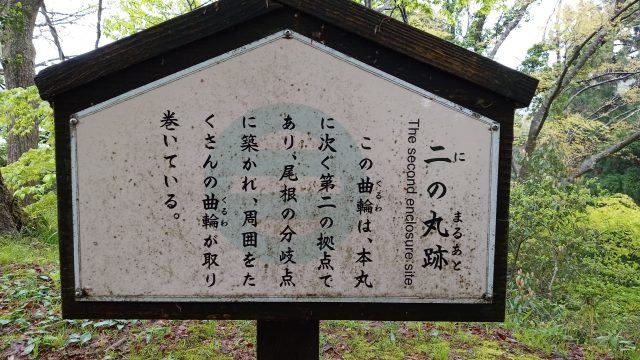 二の丸跡
に
まるあと
The second enclosure site.
この曲輪は、本丸
くるわ
に次ぐ第二の拠点で
あり、尾根の分岐点
に築かれ、周囲をた
くさんの曲輪が取り
くるわ
巻いている。